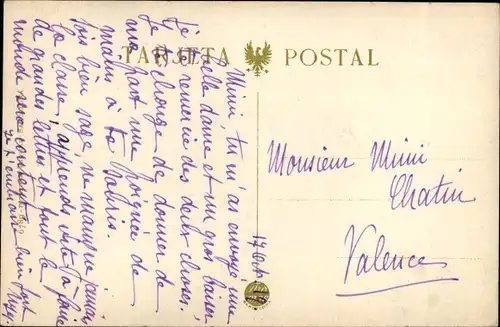 TARJETA POSTAL
17 Oct 19
Mimi, tu m'as envoyé une
belle dame et un gros baiser,
je te remercie des deux choses.
Je charge de donner de
ma part une poignée de
mains à
sois bien sage, ne manque jamais
la classe, apprends vite à faire
de grandes lettres et tout le
monde sera content
je t'embrasse bien fort
Monsieur Mimi
Chatin
Valence